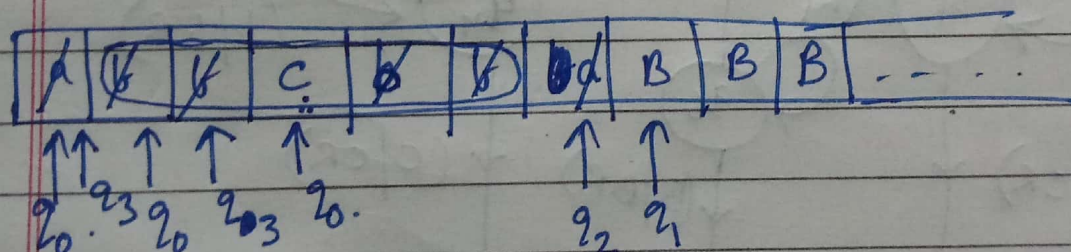 a b b c b b a B B B - - - . .
q0. q3 q0 q3 q0. q2 q1